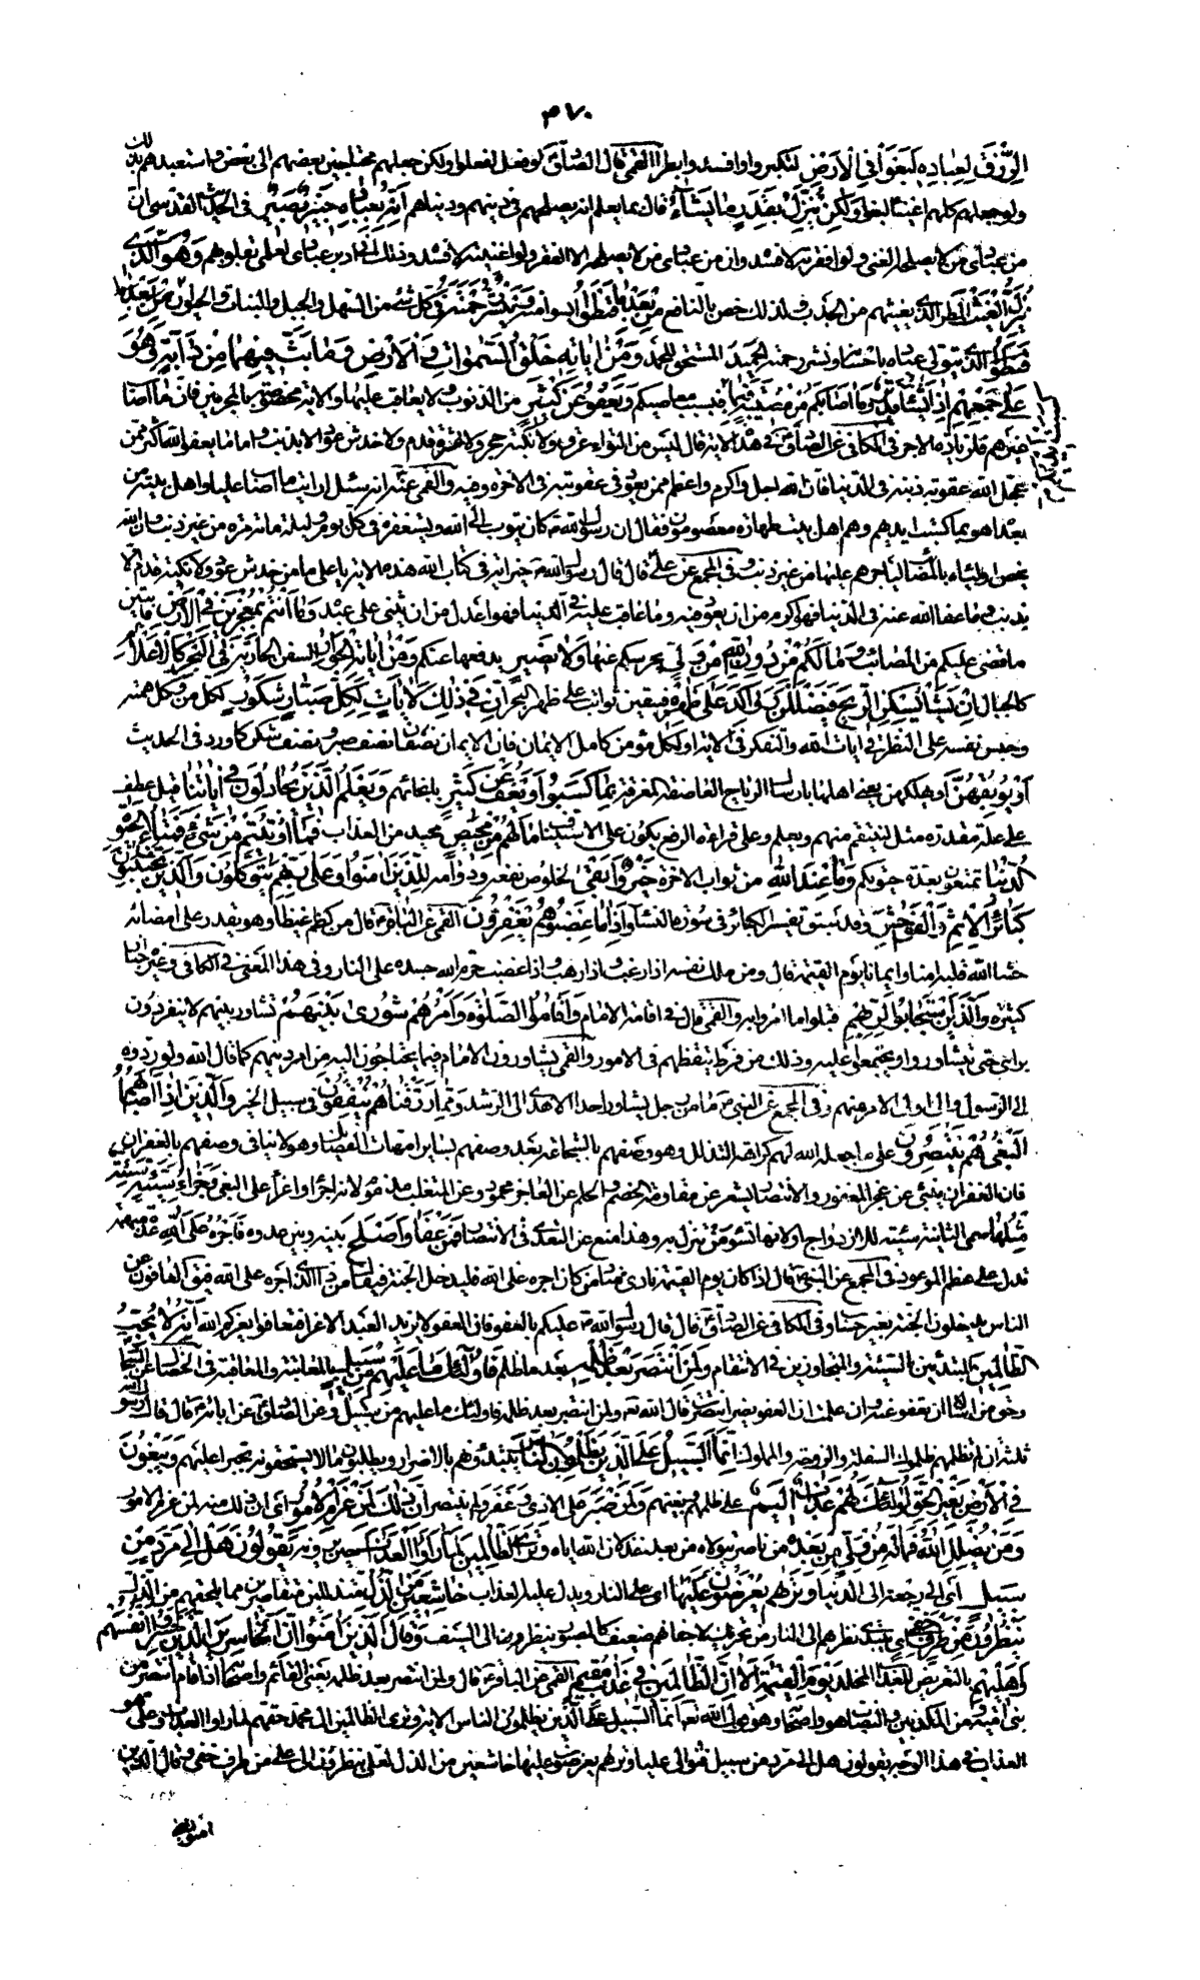 ٣٧٠
الرِّزْقَ لِعِبادِهِ لَبَغَوْا فِي الْأَرْضِ لتكبروا وافسدوا بطرا القمي قال الصادق لو فعل لفعلوا ولكن جعلهم محتاجين بعضهم الى بعض واستعبدهم بذلك
ولو جعلهم كلهم اغنياء لبغوا وَلكِنْ يُنَزِّلُ بِقَدَرٍ ما يَشاءُ قال بما يعلم انه يصلحهم في دينهم ودنياهم إِنَّهُ بِعِبادِهِ خَبِيرٌ بَصِيرٌ في الحديث القدسي ان
من عبادي من لا يصلحه الا الغنى ولو افقرته لافسده وان من عبادي من لا يصلحه الا الفقر ولو اغنيته لافسده وذلك اني ادبر عبادي لعلمي بقلوبهم وَهُوَ الَّذِي
يُنَزِّلُ الْغَيْثَ المطر الذي يغيثهم من الجدب ولذلك خص بالنافع مِنْ بَعْدِ ما قَنَطُوا ايسوا منه وَيَنْشُرُ رَحْمَتَهُ في كل شيء من السهل والجبل والنبات والحيوان
وَهُوَ الْوَلِيُّ الذي يتولى عباده باحسانه ونشر رحمته الْحَمِيدُ المستحق للحمد وَمِنْ آياتِهِ خَلْقُ السَّمواتِ وَالْأَرْضِ وَما بَثَّ فِيهِما مِنْ دابَّةٍ وَهُوَ
عَلى جَمْعِهِمْ إِذا يَشاءُ قَدِيرٌ وَما أَصابَكُمْ مِنْ مُصِيبَةٍ فبسبب معاصيكم وَيَعْفُو عَنْ كَثِيرٍ من الذنوب ولا يعاقب عليها والاية مخصوصة بالمجرمين فان ما اصاب
غيرهم فلزيادة الاجر في الكافي عن الصادق في هذه الاية قال ليس من التواء عرق ولا نكبة حجر ولا عثرة قدم ولا خدش عود الا بذنب ولما يعفو الله اكثر فمن
عجل الله عقوبة ذنبه في الدنيا فان الله اجل واكرم واعظم من ان يعود في عقوبته في الاخرة وفيه والقمي عنه انه سئل ارايت ما اصاب عليا واهل بيته من
بعده اهو بما كسبت ايديهم وهم اهل بيت طهارة معصومون فقال ان رسول الله كان يتوب الى الله ويستغفره في كل يوم وليلة مائة مرة من غير ذنب ان الله
يخص اولياءه بالمصائب لياجرهم عليها من غير ذنب وفي المجمع عن علي قال قال رسول الله خير اية في كتاب الله هذه الاية يا علي ما من خدش عود ولا نكبة قدم الا
بذنب وما عفا الله عنه في الدنيا فهو اكرم من ان يعود فيه وما عاقب عليه في الدنيا فهو اعدل من ان يثني على عبده وَما أَنْتُمْ بِمُعْجِزِينَ فِي الْأَرْضِ فائتين
ما قضي عليكم من المصائب وَما لَكُمْ مِنْ دُونِ اللهِ مِنْ وَلِيٍّ يحرسكم عنها وَلا نَصِيرٍ يدفعها عنكم وَمِنْ آياتِهِ الْجَوارِ السفن الجارية فِي الْبَحْرِ كَالْأَعْلامِ
كالجبال إِنْ يَشَأْ يُسْكِنِ الرِّيحَ فَيَظْلَلْنَ رَواكِدَ عَلى ظَهْرِهِ فيبقين ثوابت على ظهر البحر إِنَّ فِي ذلِكَ لَآياتٍ لِكُلِّ صَبَّارٍ شَكُورٍ لكل من وكل همته
وحبس نفسه على النظر في ايات الله والتفكر في الائه او لكل مؤمن كامل الايمان فان الايمان نصفان نصف صبر ونصف شكر كما ورد في الحديث
أَوْ يُوبِقْهُنَّ او يهلكهن يعني اهلها بارسال الرياح العاصفة المغرقة بِما كَسَبُوا وَيَعْفُ عَنْ كَثِيرٍ بانجائهم وَيَعْلَمَ الَّذِينَ يُجادِلُونَ فِي آياتِنا قيل عطف
على علة مقدرة مثل لينتقم منهم ويعلم وعلى قراءة الرفع يكون على الاستيناف ما لَهُمْ مِنْ مَحِيصٍ محيد من العذاب فَما أُوتِيتُمْ مِنْ شَيْءٍ فَمَتاعُ الْحَيوةِ
الدُّنْيا تمتعون به مدة حيوتكم وَما عِنْدَ اللهِ من ثواب الاخرة خَيْرٌ وَأَبْقى لخلوص نفعه ودوامه لِلَّذِينَ آمَنُوا وَعَلى رَبِّهِمْ يَتَوَكَّلُونَ وَالَّذِينَ يَجْتَنِبُونَ
كَبائِرَ الْإِثْمِ وَالْفَواحِشَ وقد سبق تفسير الكبائر في سورة النساء وَإِذا ما غَضِبُوا هُمْ يَغْفِرُونَ القمي عن الباقر قال من كظم غيظا وهو يقدر على امضائه
حشا الله قلبه امنا وايمانا يوم القيمة قال ومن ملك نفسه اذا رغب واذا رهب واذا غضب حرم الله جسده على النار وفي هذا المعنى في الكافي وغيره اخبار
كثيرة وَالَّذِينَ اسْتَجابُوا لِرَبِّهِمْ قبلوا ما امروا به والقمي قال في اقامة الامام وَأَقامُوا الصَّلوةَ وَأَمْرُهُمْ شُورى بَيْنَهُمْ تشاور بينهم لا ينفردون
براي حتى يتشاوروا ويجتمعوا عليه وذلك من فرط تيقظهم في الامور والقمي يشاورون الامام فيما يحتاجون اليه من امر دينهم كما قال الله ولو ردوه
الى الرسول والى اولي الامر منهم وفي المجمع عن النبي ما من رجل يشاور احدا الا هدي الى الرشد وَمِمَّا رَزَقْناهُمْ يُنْفِقُونَ في سبيل الخير وَالَّذِينَ إِذا أَصابَهُمُ
الْبَغْيُ هُمْ يَنْتَصِرُونَ على ما جعله الله لهم كراهة التذلل وهو وصفهم بالشجاعة بعد وصفهم بساير امهات الفضائل وهو لا ينافي وصفهم بالغفران
فان الغفران ينبئ عن عجز المغفور والانتصار يشعر عن مقاومة الخصم والحلم عن العاجز محمود وعن المتغلب مذموم لانه اجراء واغراء على البغي وَجَزاءُ سَيِّئَةٍ سَيِّئَةٌ
مِثْلُها سمى الثانية سيئة للازدواج ولانها تسوء من تنزل به وهذا منع عن التعدي في الانتصار فَمَنْ عَفا وَأَصْلَحَ بينه وبين عدوه فَأَجْرُهُ عَلَى اللهِ عدة مبهمة
تدل على عظم الموعود في المجمع عن النبي قال اذا كان يوم القيمة نادى مناد من كان اجره على الله فليدخل الجنة فيقال من ذا الذي اجره على الله فيق العافون عن
الناس يدخلون الجنة بغير حساب وفي الكافي عن الصادق قال قال رسول الله عليكم بالعفو فان العفو لا يزيد العبد الا عزا فتعافوا يعزكم الله إِنَّهُ لا يُحِبُّ
الظَّالِمِينَ المبتدئين بالسيئة والمتجاوزين في الانتقام وَلَمَنِ انْتَصَرَ بَعْدَ ظُلْمِهِ بعد ما ظلم فَأُولئِكَ ما عَلَيْهِمْ مِنْ سَبِيلٍ بالمعاتبة والمعاقبة في الخصال عن السجاد
وحق من اساءك ان تعفو عنه وان علمت ان العفو يضر انتصرت قال الله تعالى ولمن انتصر بعد ظلمه فاولئك ما عليهم من سبيل وعن الصادق عن ابائه قال قال رسول الله
ثلثة ان لم تظلمهم ظلموك السفلة والزوجة والمملوك إِنَّمَا السَّبِيلُ عَلَى الَّذِينَ يَظْلِمُونَ النَّاسَ يبتدئونهم بالاضرار ويطلبون ما لا يستحقونه تجبرا عليهم وَيَبْغُونَ
فِي الْأَرْضِ بِغَيْرِ الْحَقِّ أُولئِكَ لَهُمْ عَذابٌ أَلِيمٌ على ظلمهم وبغيهم وَلَمَنْ صَبَرَ على الاذى وَغَفَرَ ولم ينتصر إِنَّ ذلِكَ لَمِنْ عَزْمِ الْأُمُورِ اي ان ذلك منه لمن عزم الامور
وَمَنْ يُضْلِلِ اللهُ فَما لَهُ مِنْ وَلِيٍّ مِنْ بَعْدِهِ من ناصر يتولاه من بعد خذلان الله اياه وَتَرَى الظَّالِمِينَ لَمَّا رَأَوُا الْعَذابَ حين يرونه يَقُولُونَ هَلْ إِلى مَرَدٍّ مِنْ
سَبِيلٍ اي الى رجعة الى الدنيا وَتَراهُمْ يُعْرَضُونَ عَلَيْها اي على النار ويدل عليه العذاب خاشِعِينَ مِنَ الذُّلِّ متذللين متقاصرين مما يلحقهم من الذل
يَنْظُرُونَ مِنْ طَرْفٍ خَفِيٍّ يبتدي نظرهم الى النار من تحريك لاجفانهم ضعيف كالمصبور ينظر الى السيف وَقالَ الَّذِينَ آمَنُوا إِنَّ الْخاسِرِينَ الَّذِينَ خَسِرُوا أَنْفُسَهُمْ
وَأَهْلِيهِمْ بالتعريض للعذاب المخلد يَوْمَ الْقِيمَةِ أَلا إِنَّ الظَّالِمِينَ فِي عَذابٍ مُقِيمٍ القمي عن الباقر قال ولمن انتصر بعد ظلمه يعني القائم واصحابه اذا قام انتصر من
بني امية ومن المكذبين والنصاب هو واصحابه وهو قول الله تعالى انما السبيل على الذين يظلمون الناس الاية وترى الظالمين ال محمد حقهم لما راوا العذاب وعلي هو
العذاب في هذا الوجه يقولون هل الى مرد من سبيل فنوالي عليا وتريهم يعرضون عليها خاشعين من الذل لعلي ينظرون الى علي من طرف خفي وقال الذين
امنوا يعني